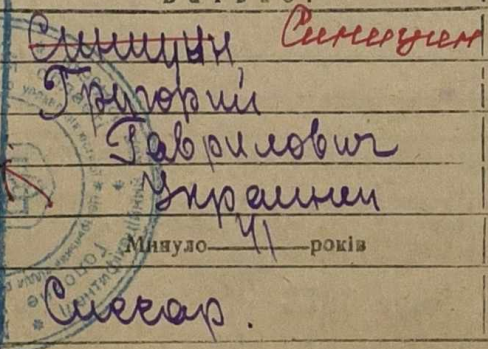 Синицын Синицин
Григорий
Гаврилович
Украинец
Минуло 41 років
Слесар.